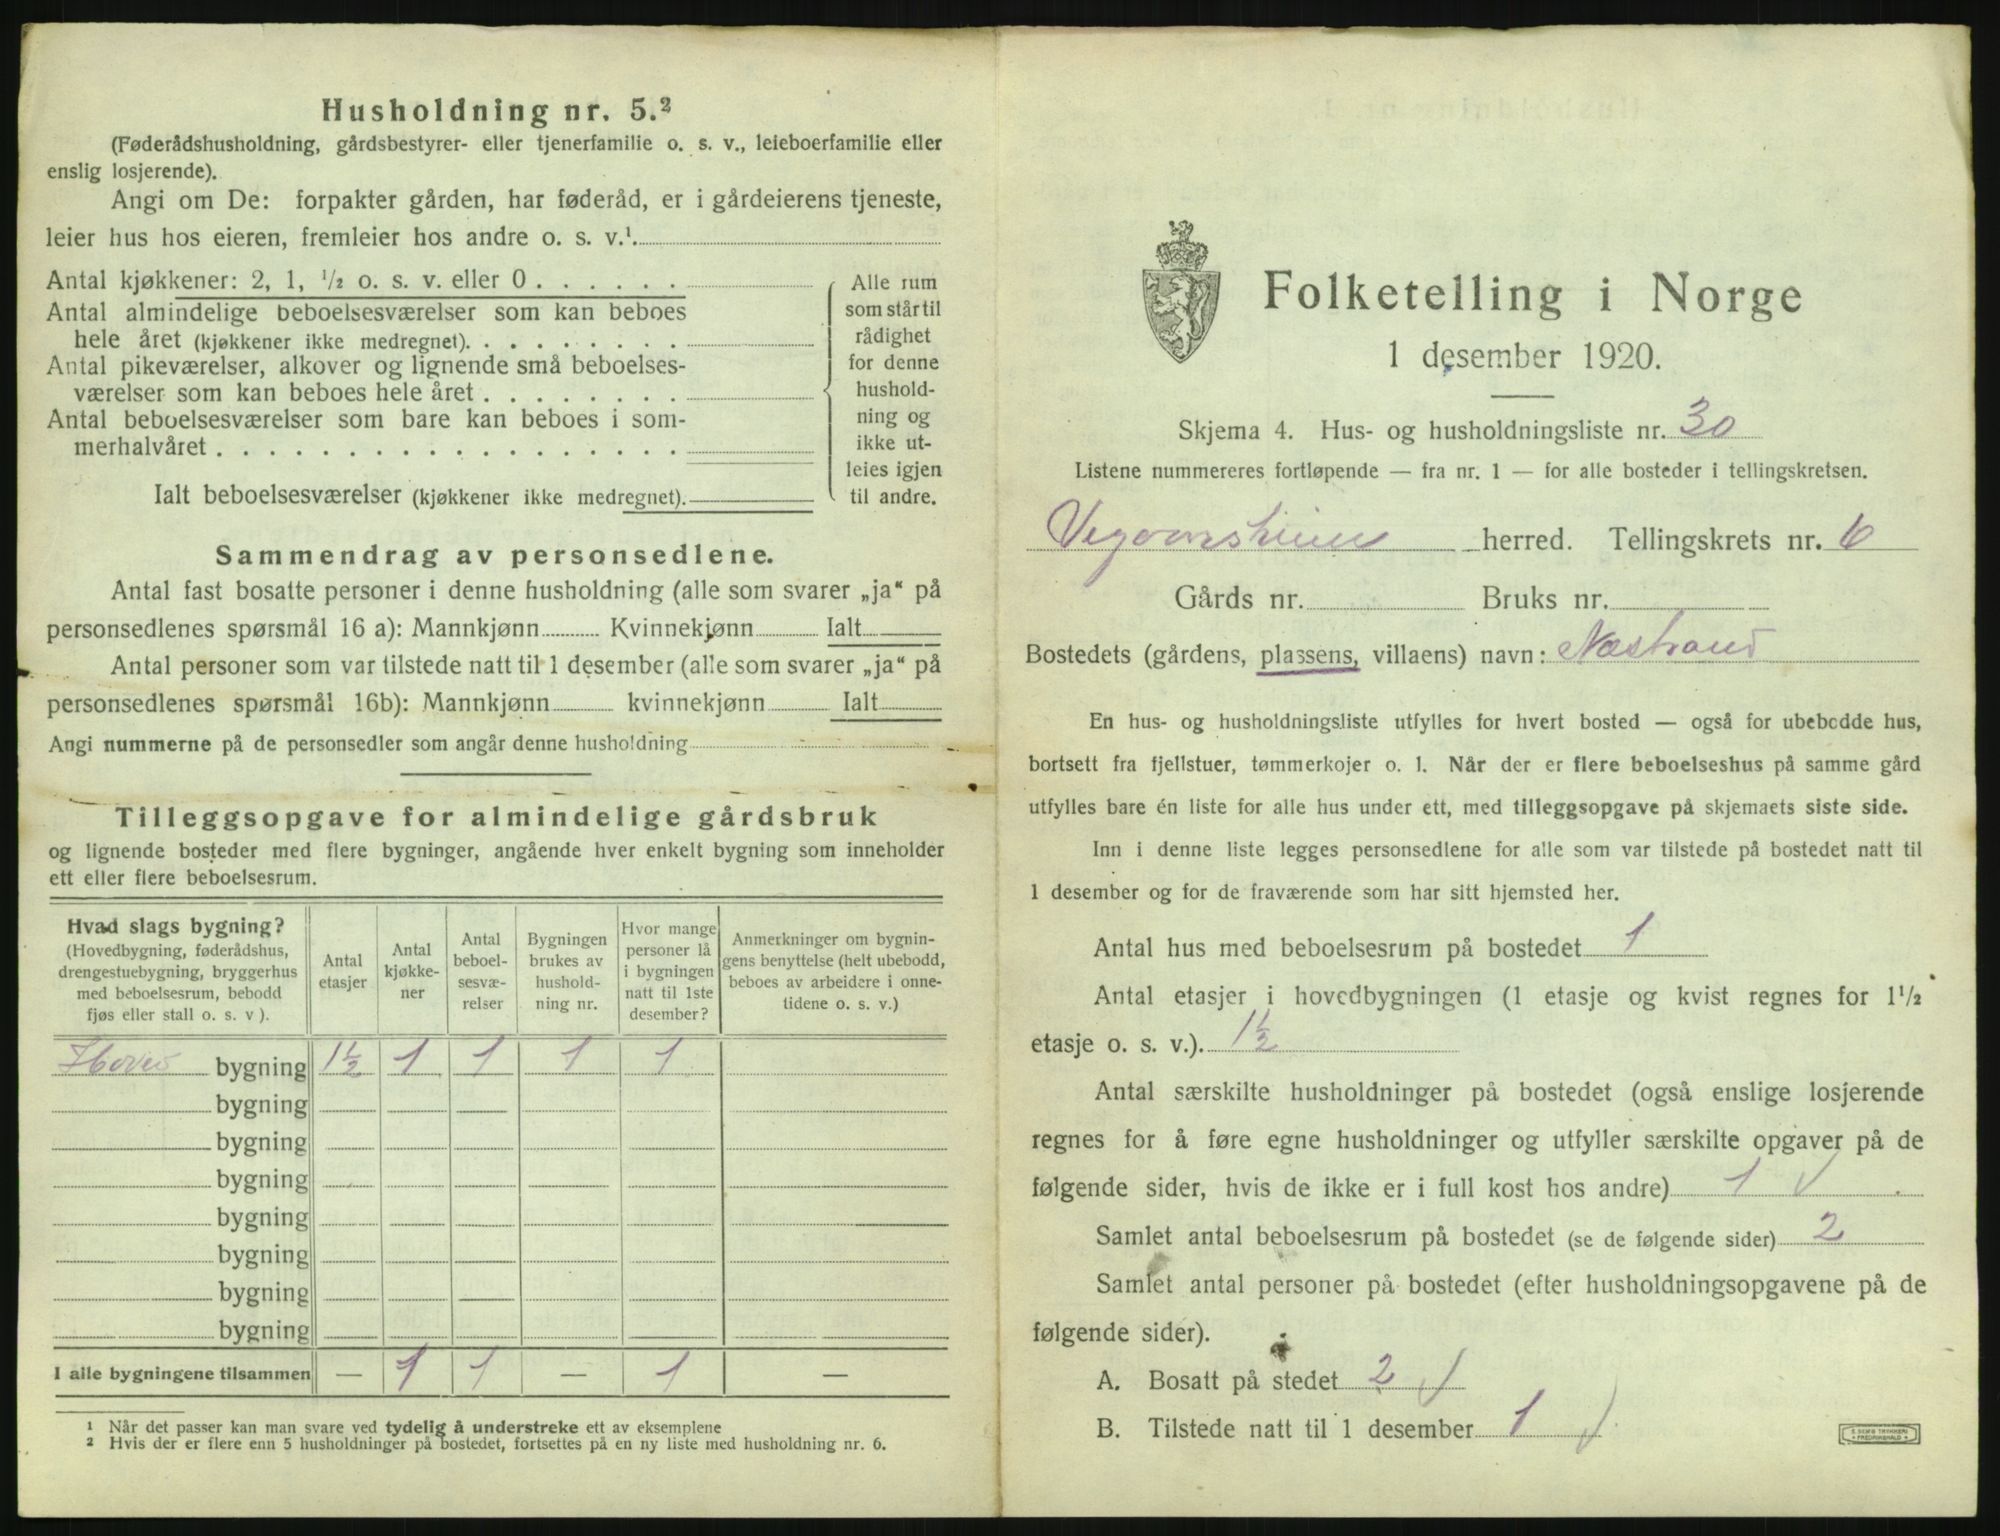 Husholdning nr. 5.²
(Føderådshusholdning, gårdsbestyrer- eller tjenerfamilie o. s. v., leieboerfamilie eller
enslig losjerende).
Angi om De: forpakter gården, har føderåd, er i gårdeierens tjeneste,
leier hus hos eieren, fremleier hos andre o. s. v.¹
Antal kjøkkener: 2, 1, ½ o. s. v. eller 0
Antal almindelige beboelsesværelser som kan beboes
hele året (kjøkkener ikke medregnet).
Antal pikeværelser, alkover og lignende små beboelses-
værelser som kan beboes hele året
Antal beboelsesværelser som bare kan beboes i som-
merhalvåret
Ialt beboelsesværelser (kjøkkener ikke medregnet).
Alle rum
som står til
rådighet
for denne
hushold-
ning og
ikke ut-
leies igjen
til andre.
Sammendrag av personsedlene.
Antal fast bosatte personer i denne husholdning (alle som svarer „ja“ på
personsedlenes spørsmål 16 a): Mannkjønn Kvinnekjønn Ialt
Antal personer som var tilstede natt til 1 desember (alle som svarer „ja“ på
personsedlenes spørsmål 16b): Mannkjønn kvinnekjønn Ialt
Angi nummerne på de personsedler som angår denne husholdning
Tilleggsopgave for almindelige gårdsbruk
og lignende bosteder med flere bygninger, angående hver enkelt bygning som inneholder
ett eller flere beboelsesrum.
Hvad slags bygning?
(Hovedbygning, føderådshus,
drengestuebygning, bryggerhus
med beboelsesrum, bebodd
fjøs eller stall o. s. v ).
Antal
etasjer
Antal
kjøkke-
ner
Antal
beboel-
sesvæ-
relser
Bygningen
brukes av
hushold-
ning nr.
Hvor mange
personer lå
i bygningen
natt til 1ste
desember?
Anmerkninger om bygnin-
gens benyttelse (helt ubebodd,
beboes av arbeidere i onne-
tidene o. s. v.)
Hoved bygning 1½ 1 1 1 1
bygning
bygning
bygning
bygning
bygning
bygning
bygning
I alle bygningene tilsammen — 1 1 — 1 —
¹ Når det passer kan man svare ved tydelig å understreke ett av eksemplene
² Hvis der er flere enn 5 husholdninger på bostedet, fortsettes på en ny liste med husholdning nr. 6.
Folketelling i Norge
1 desember 1920.
Skjema 4. Hus- og husholdningsliste nr. 30
Listene nummereres fortløpende — fra nr. 1 — for alle bosteder i tellingskretsen.
Vegaarsheien herred. Tellingskrets nr. 6
Gårds nr. Bruks nr.
Bostedets (gårdens, plassens, villaens) navn: Næstrand
En hus- og husholdningsliste utfylles for hvert bosted — også for ubebodde hus,
bortsett fra fjellstuer, tømmerkojer o. l. Når der er flere beboelseshus på samme gård
utfylles bare én liste for alle hus under ett, med tilleggsopgave på skjemaets siste side.
Inn i denne liste legges personsedlene for alle som var tilstede på bostedet natt til
1 desember og for de fraværende som har sitt hjemsted her.
Antal hus med beboelsesrum på bostedet 1
Antal etasjer i hovedbygningen (1 etasje og kvist regnes for 1½
etasje o. s. v.). 1½
Antal særskilte husholdninger på bostedet (også enslige losjerende
regnes for å føre egne husholdninger og utfyller særskilte opgaver på de
følgende sider, hvis de ikke er i full kost hos andre) 1 √
Samlet antal beboelsesrum på bostedet (se de følgende sider) 2
Samlet antal personer på bostedet (efter husholdningsopgavene på de
følgende sider).
A. Bosatt på stedet 2 √
B. Tilstede natt til 1 desember 1 √
S. SEM'S TRYKKERI
FREDRIKSHALD